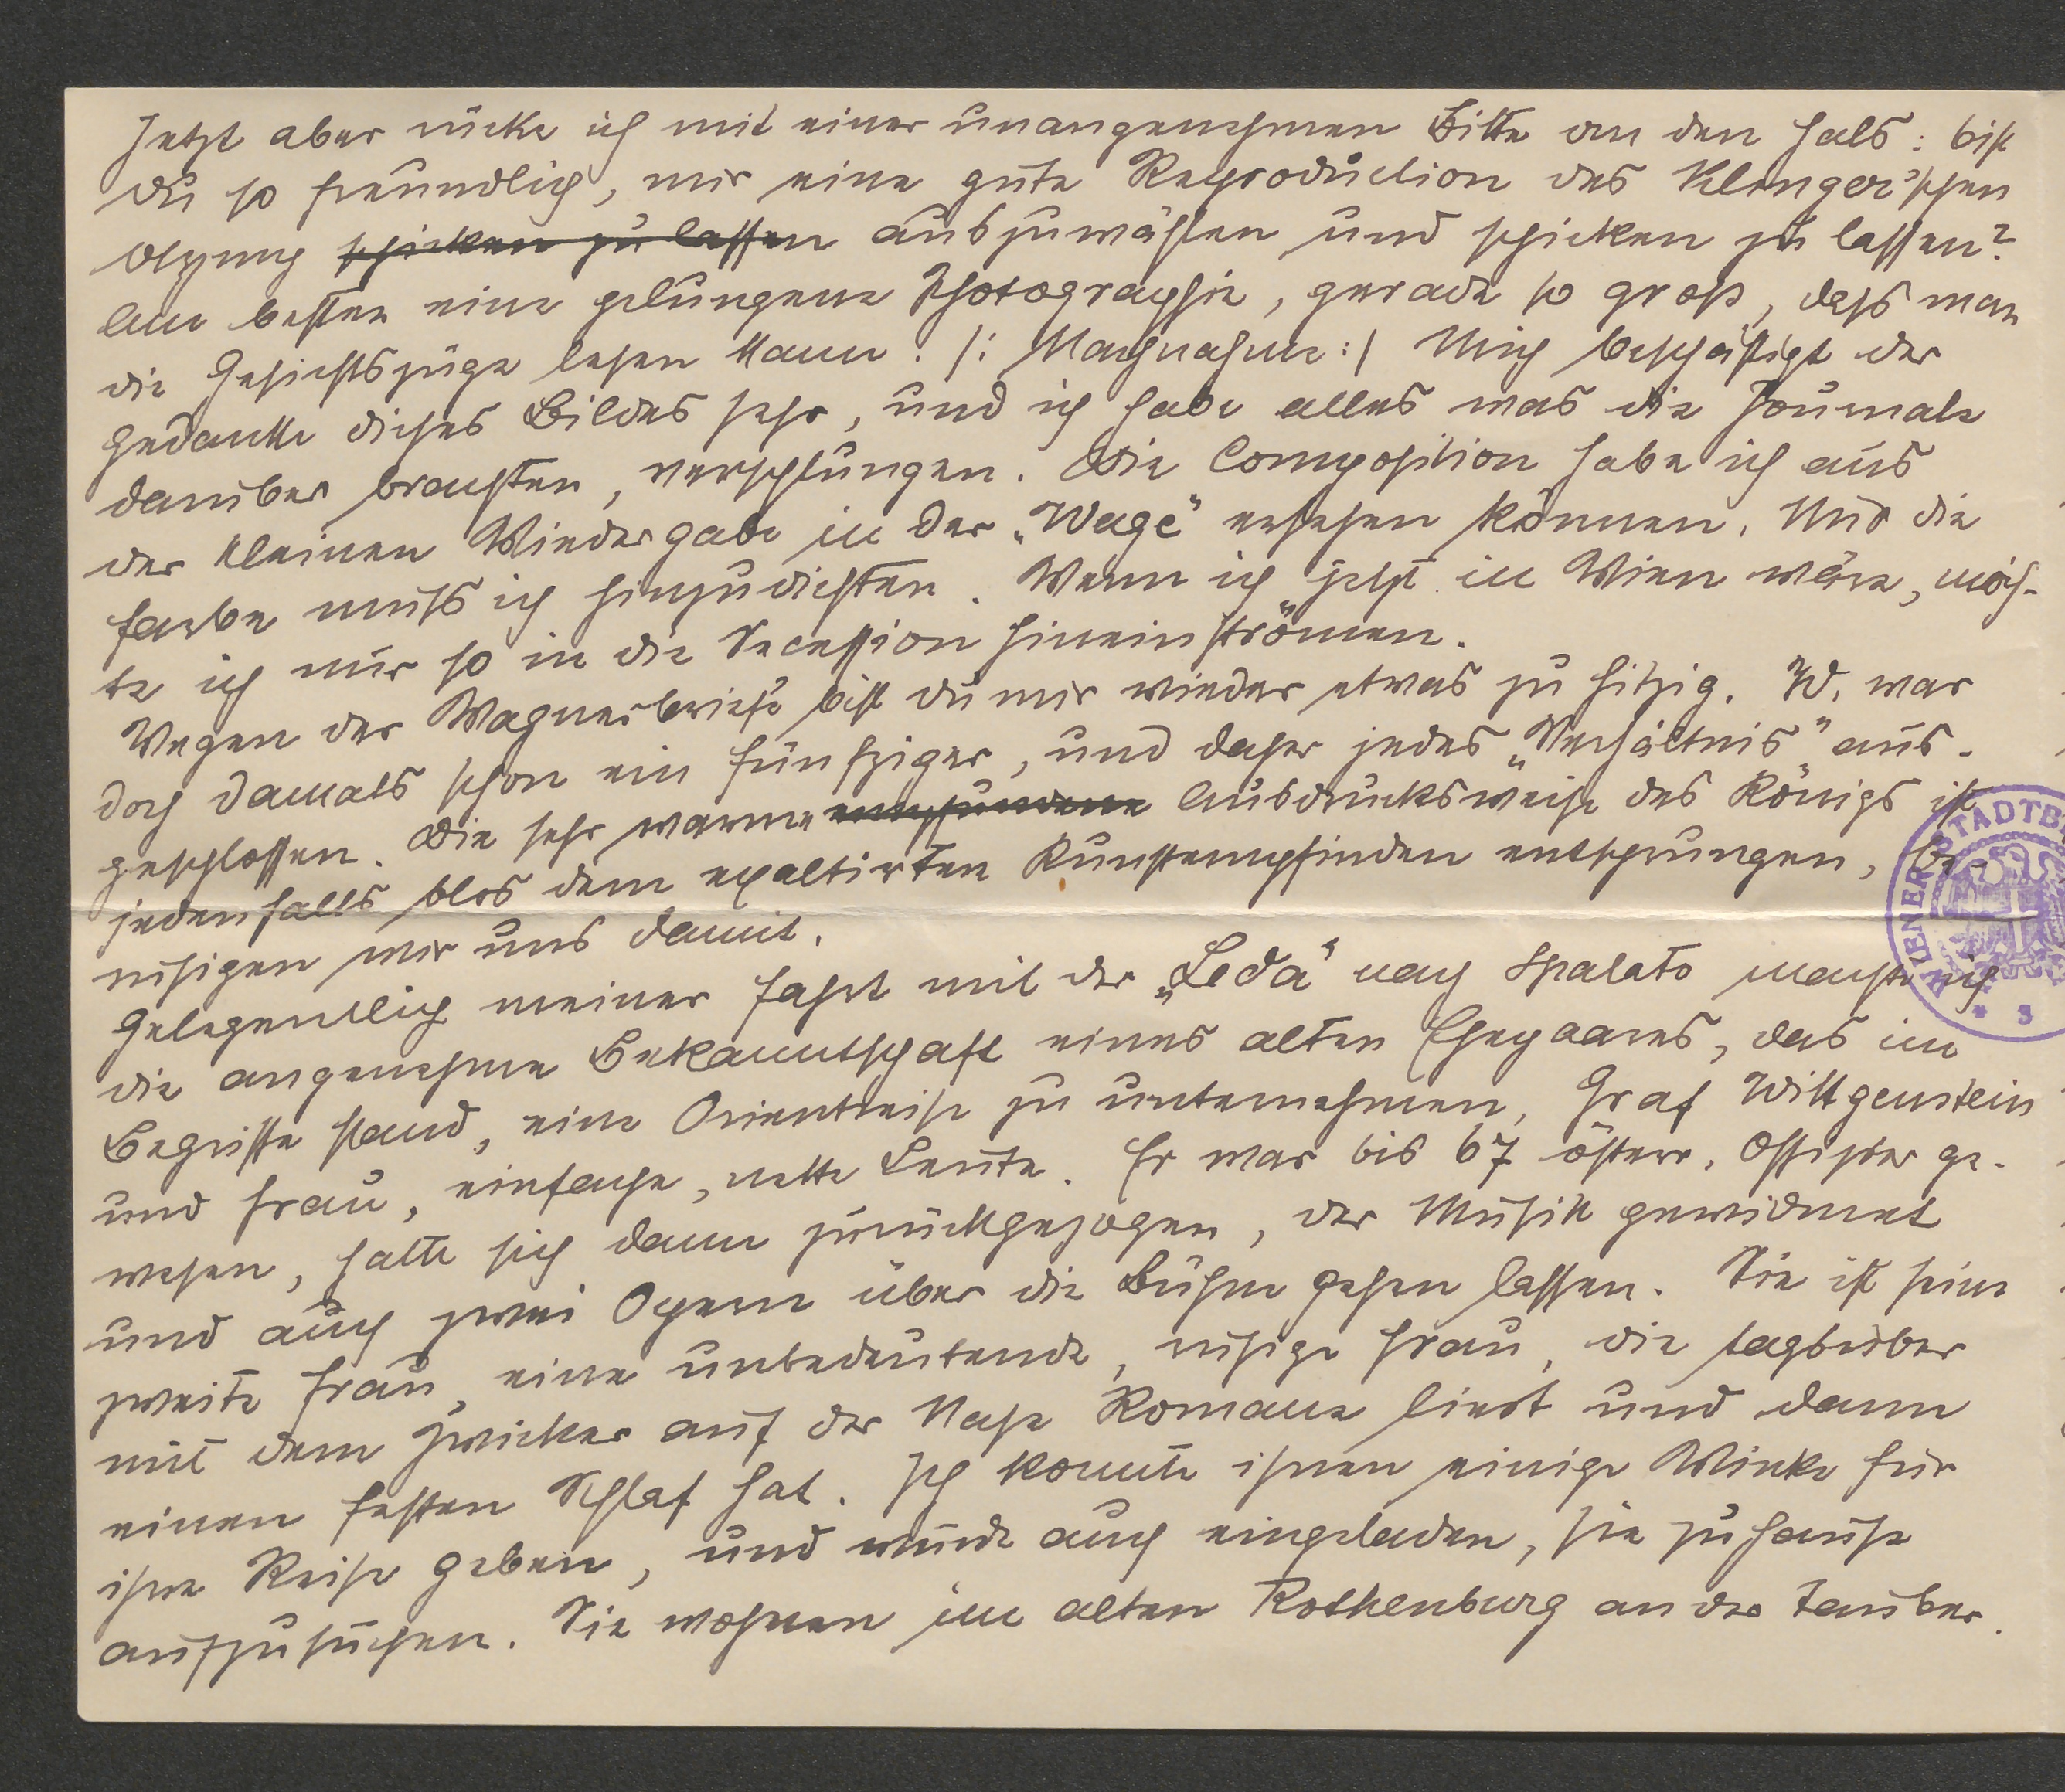 Jetzt aber rücke ich mit einer unangenehmen Bitte an den Hals: bist
du so freundlich, mir eine gute Reproduction des Klinger'schen
Olymp schicken zu lassen auszuwählen und schicken zu lassen?
Am besten eine gelungene Photographie, gerade so groß, dass man
die Gesichtszüge lesen kann. /: Nachnahme :/ Mich beschäftigt der
Gedanke dieses Bildes sehr, und ich habe alles was die Journale
darüber brachten, verschlungen. Die Composition habe ich aus
der kleinen Wiedergabe in der „Wage" ersehen können. Nur die
Farbe muß ich hinzudichten. Wenn ich jetzt in Wien wäre, möch-
te ich nur so in die Secession hineinströmen.
Wegen der Wagnerbriefe bist du mir wieder etwas zu hitzig. W. war
doch damals schon ein fünfziger, und daher jedes „Verhältnis" aus-
geschlossen. Die sehr warme empfundene Ausdrucksweise des Königs ist
jedenfalls blos dem exaltirten Kunstempfinden entsprungen, be-
ruhigen wir uns damit.
Gelegentlich meiner Fahrt mit der „Leda" nach Spalato machte ich
die angenehme Bekanntschaft eines alten Ehepaares, das im
Begriffe stand, eine Orientreise zu unternehmen, Graf Wittgenstein
und Frau, einfache, nette Leute. Er war bis 67 österr. Offizier ge-
wesen, hatte sich dann zurückgezogen, der Musik gewidmet
und auch zwei Opern über die Bühne gehen lassen. Sie ist seine
zweite Frau, eine unbedeutende, ruhige Frau, die tagsüber
mit dem Zwicker auf der Nase Romane liest und dann
einen festen Schlaf hat. Ich konnte ihnen einige Winke für
ihre Reise geben, und wurde auch eingeladen, sie zuhause
aufzusuchen. Sie wohnen im alten Rothenburg an der Tauber.
WIENER STADTB
* 3